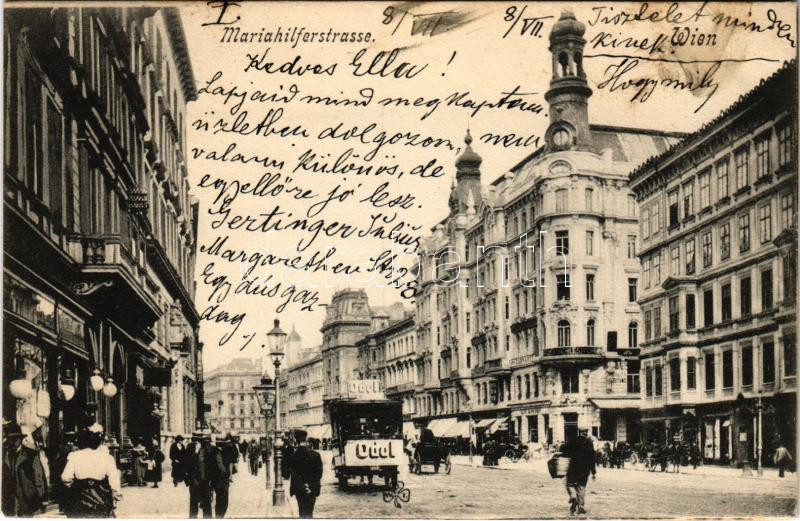 I.
Mariahilferstrasse.
8/VII.
8/VII.
Tisztelet minden
kinek.
Wien
Hogy mily
Kedves Ella!
Lapjaid mind megkaptam.
üzletben dolgozom, nem
valami különös, de
egyellőre jó lesz.
Gertinger Július
Margarethen Str 28
Egy dús gaz
dag.
Odol
Odol